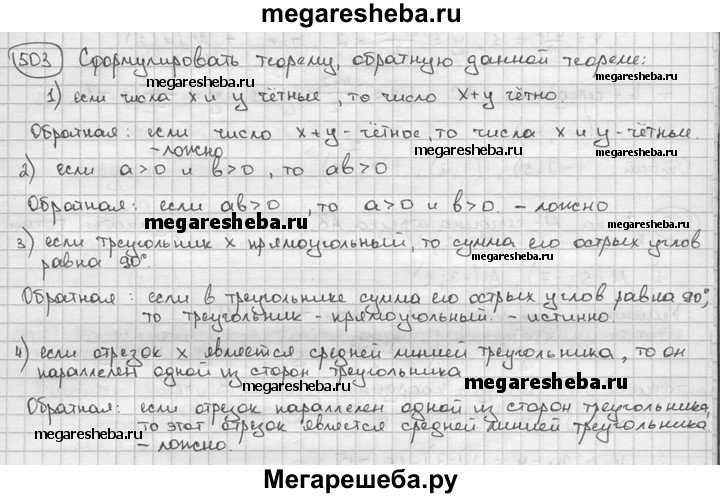 megaresheba.ru
1503 Сформулировать теорему, обратную данной теореме:
megaresheba.ru megaresheba.ru
1) если числа x и y чётные, то число x+y чётно.
Обратная: если число x+y - чётное, то числа x и y - чётные.
- ложно megaresheba.ru
2) если a>0 и b>0, то ab>0
Обратная: если ab>0, то a>0 и b>0. - ложно
megaresheba.ru
3) если треугольник x прямоугольный, то сумма его острых углов
равна 90°. megaresheba.ru
Обратная: если в треугольнике сумма его острых углов равна 90°,
то треугольник - прямоугольный. - истинно.
megaresheba.ru
4) если отрезок x является средней линией треугольника, то он
параллелен одной из сторон треугольника
megaresheba.ru megaresheba.ru
Обратная: если отрезок параллелен одной из сторон треугольника,
то этот отрезок является средней линией треугольника
megaresheba.ru megaresheba.ru
- ложно.
Мегарешеба.ру